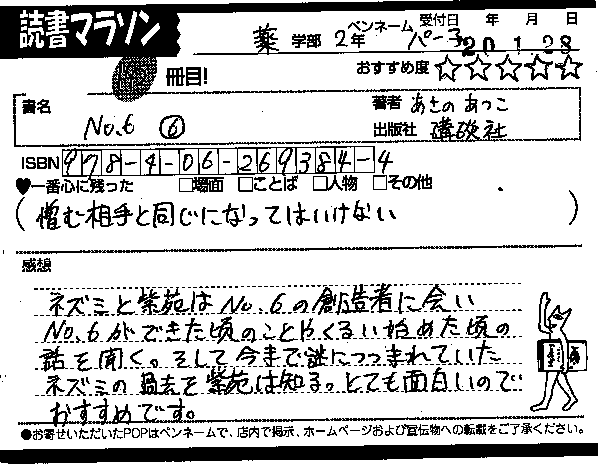 読書マラソン
薬 学部 2年 ペンネーム パー子 受付日 年 月 日
20.1.28
冊目! おすすめ度 ☆☆☆☆☆
書名 No.6 ⑥
著者 あさのあつこ
出版社 講談社
ISBN 978-4-06-269384-4
♥一番心に残った □場面 □ことば □人物 □その他
(憎む相手と同じになってはいけない)
感想
ネズミと紫苑はNo.6の創造者に会い
No.6ができた頃のことやくるい始めた頃の
話を聞く。そして今まで謎につつまれていた
ネズミの過去を紫苑は知る。とても面白いので
おすすめです。
●お寄せいただいたPOPはペンネームで、店内で掲示、ホームページおよび宣伝物への転載をご了承ください。